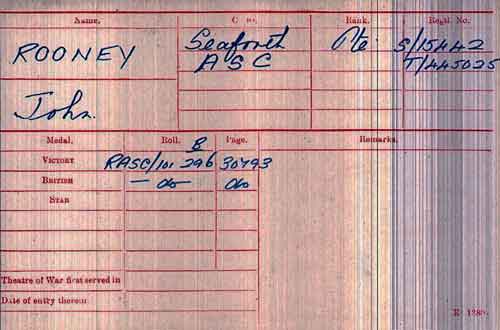 Name. Corps. Rank. Regtl. No.
ROONEY Seaforth Pte S/15442
A S C T/445025
John.
Medal. Roll. Page. Remarks.
B
VICTORY RASC/101 296 30793
BRITISH — do — do
STAR
Theatre of War first served in
Date of entry therein
K 1380.